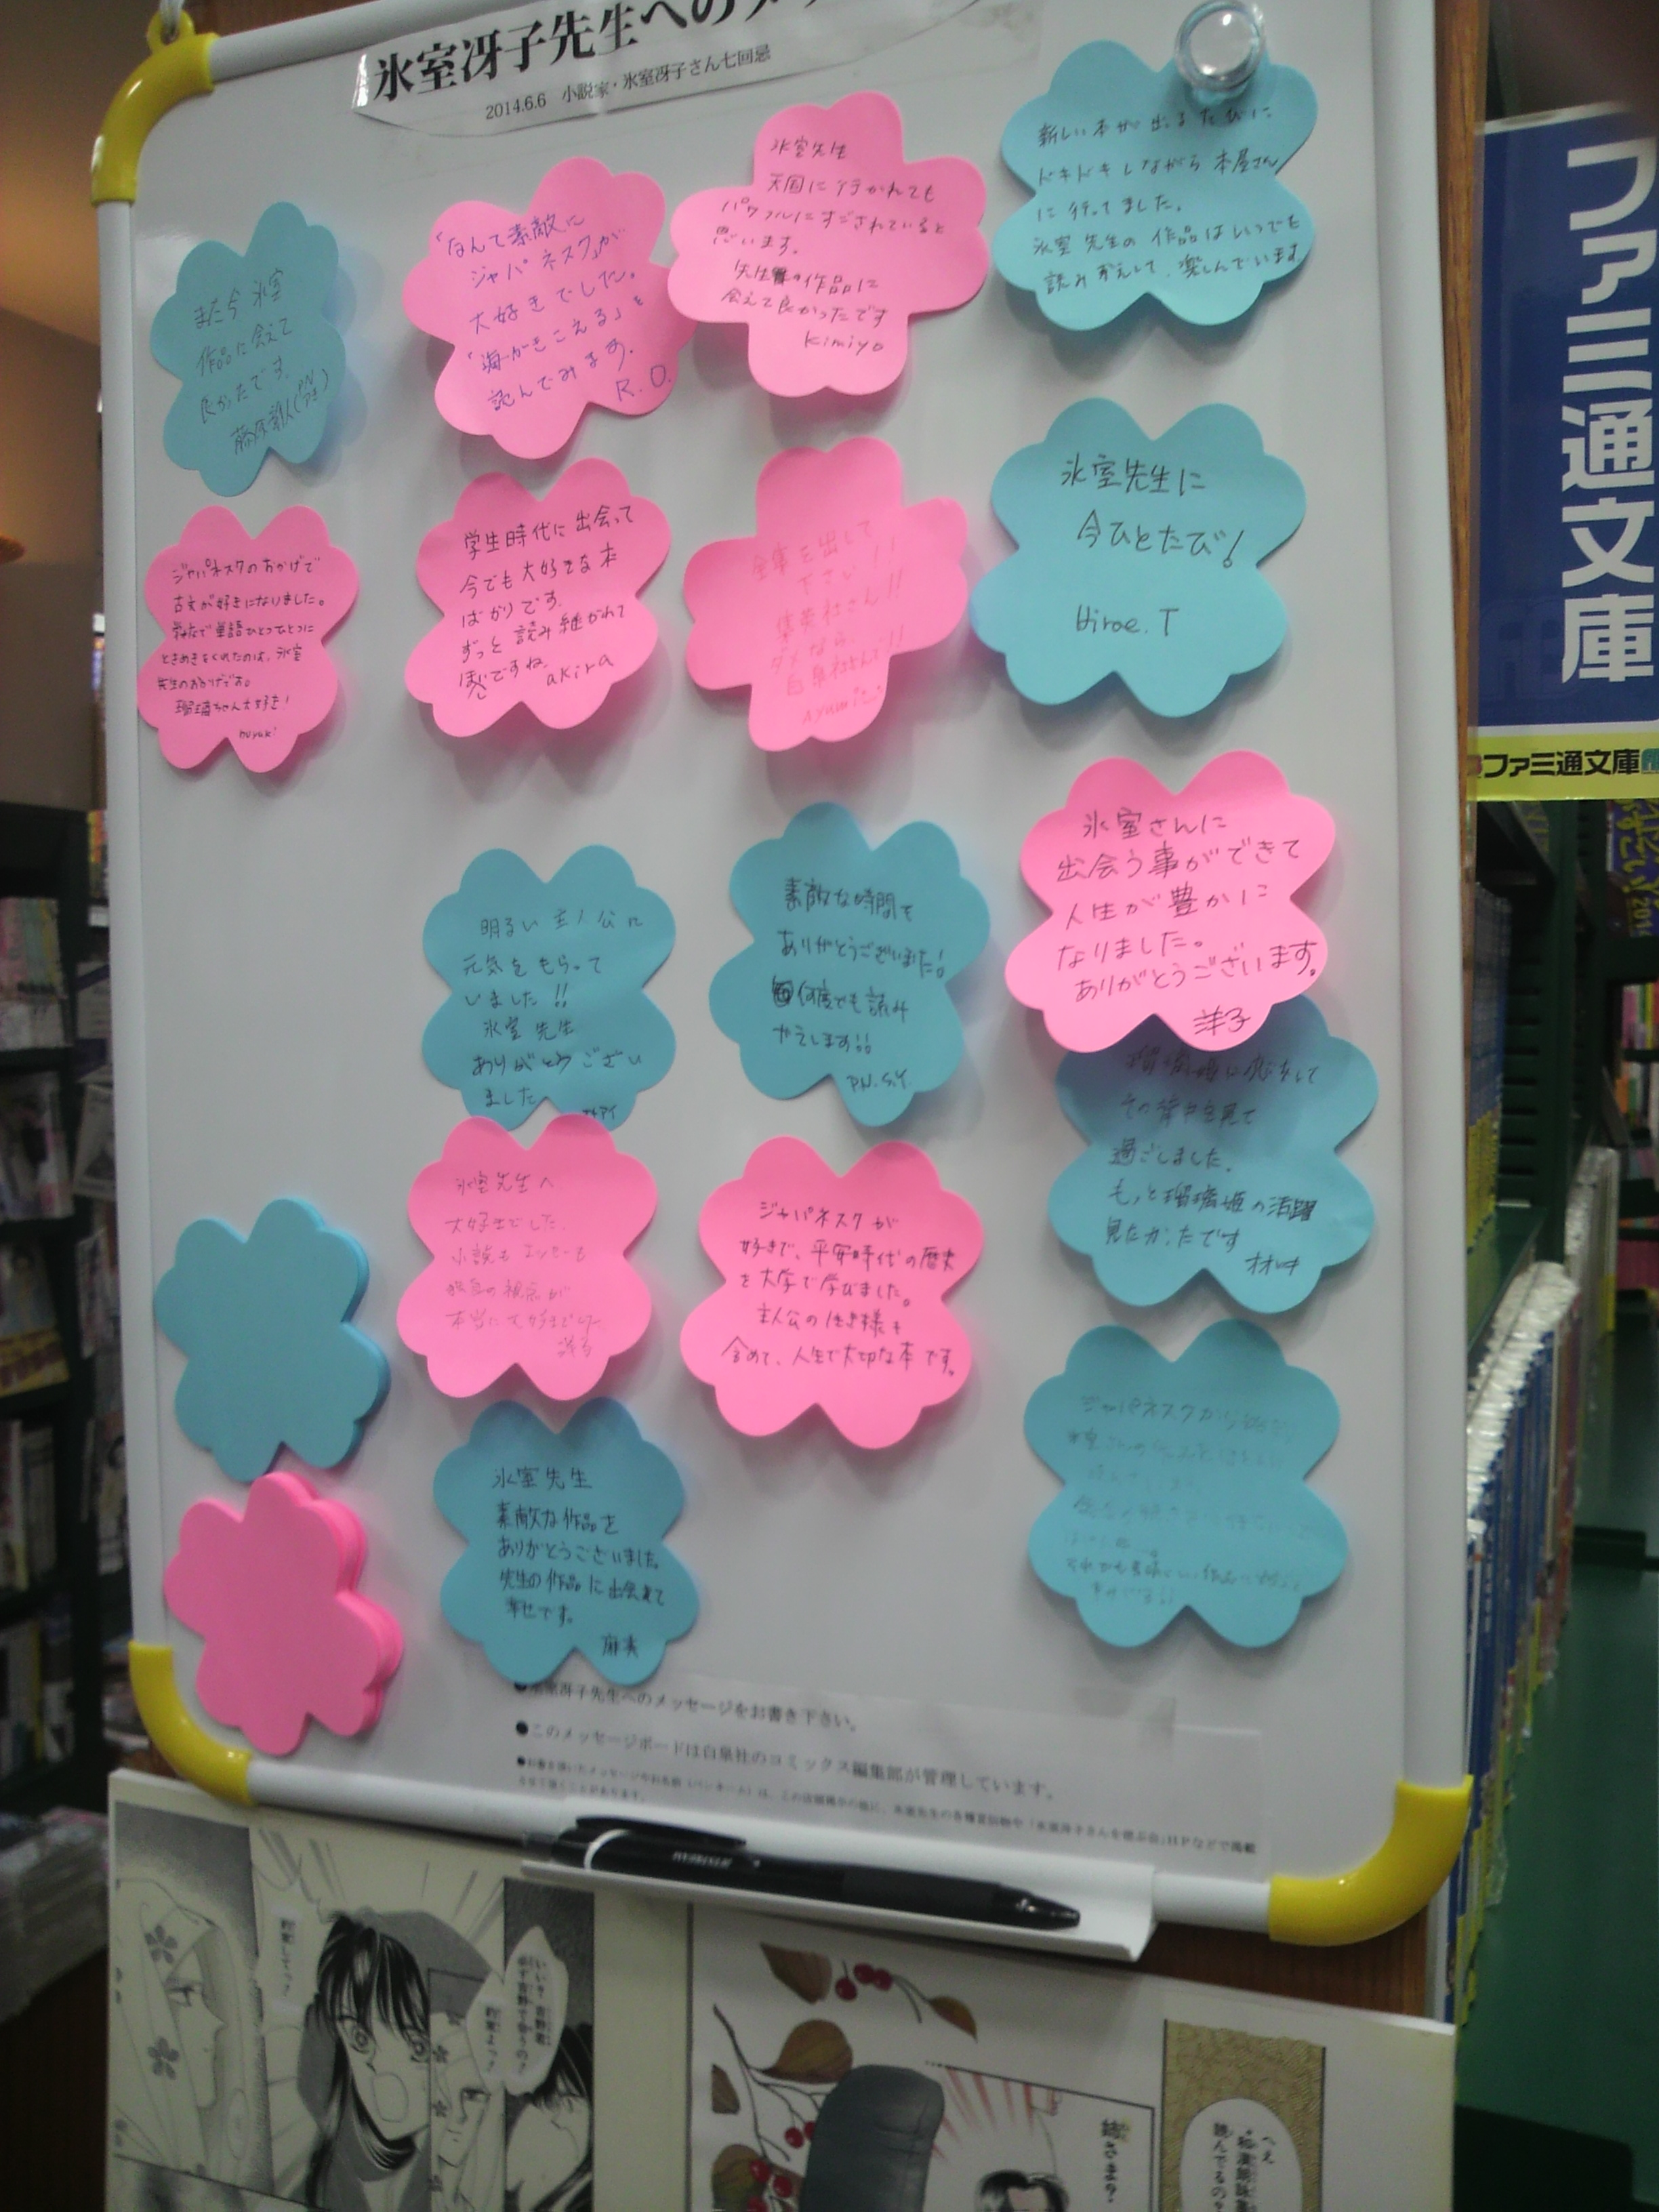 氷室冴子先生への
2014.6.6 小説家・氷室冴子さん七回忌
また今 氷室
作品に会えて
良かったです。
「なんて素敵に
ジャパネスク」が
大好きでした。
「海がきこえる」を
読んでみます。
R.O.
氷室先生
天国に行かれても
パワフルにすごされていると
思います。
先生の作品に
会えて良かったです
Kimiyo
新しい本が出るたびに
ドキドキしながら本屋さん
に行ってました。
氷室先生の作品はいつでも
読みかえして、楽しんでいます
ジャパネスクのおかげで
古文が好きになりました。
単語ひとつひとつに
ときめきをくれたのは、氷室
先生のおかげです。
瑠璃ちゃん大好き!
学生時代に出会って
今でも大好きな本
ばかりです。
ずっと読み継がれて
ほしいですね。 akira
全集を出して
下さい!!
集英社さん!!
ダメなら、
白泉社さんで!!
ayumi
氷室先生に
今ひとたび!
Hiroe.T
明るい主人公に
元気をもらって
いました!!
氷室先生
ありがとうござい
ました
素敵な時間を
ありがとうございました!
何度でも読み
かえします!!
P.N. S.Y.
氷室さんに
出会う事ができて
人生が豊かに
なりました。
ありがとうございます。
洋子
瑠璃姫に恋をして
その背中を見て
過ごしました。
もっと瑠璃姫の活躍
見たかったです
氷室先生へ
大好きでした。
小説もエッセーも
独自の視点が
本当に大好きでした
ジャパネスクが
好きで、平安時代の歴史
を大学で学びました。
主人公の生き様も
含めて、人生で大切な本です。
氷室先生
素敵な作品を
ありがとうございました。
先生の作品に出会えて
幸せです。
麻実
ジャパネスクから
●氷室冴子先生へのメッセージをお書き下さい。
●このメッセージボードは白泉社のコミックス編集部が管理しています。
ファミ通文庫
ファミ通文庫
約束してっ?
いい?吉野君
必ず吉野で会うの?
約束よっ?
姉さま?
へえ
読んでるの?